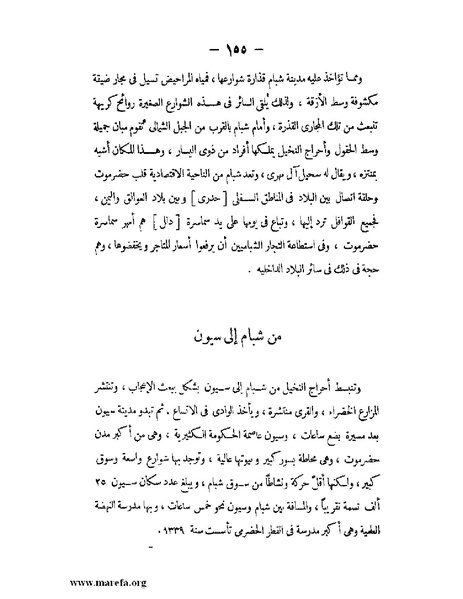 — ١٥٥ —
ومما تؤاخذ عليه مدينة شبام قذارة شوارعها ، فمياه المراحيض تسيل فى مجار ضيقة
مكشوفة وسط الأزقة ، ولذلك يلقى السائر فى هذه الشوارع الصغيرة روائح كريهة
تنبعث من تلك المجارى القذرة ، وأمام شبام بالقرب من الجبل الشمالى تقوم مبان جميلة
وسط الحقول وأحراج النخيل يملكها أفراد من ذوى اليسار ، وهذا المكان أشبه
بمنتزه ، ويقال له سحيل آل مهرى ، وتعد شبام من الناحية الاقتصادية قلب حضرموت
وحلقة اتصال بين البلاد فى المناطق السفلى [ حدرى ] وبين بلاد العوالق واليمن ،
فجميع القوافل ترد إليها ، وتباع فى يومها على يد سماسرة [ دلال ] هم أمهر سماسرة
حضرموت ، وفى استطاعة التجار الشباميين أن يرفعوا أسعار المتاجر ويخفضوها ، وهم
حجة فى ذلك فى سائر البلاد الداخلية .
من شبام إلى سيون
وتنبسط أحراج النخيل من شبام إلى سيون بشكل يبعث الإعجاب ، وتنتشر
المزارع الخضراء ، والقرى منتشرة ، ويأخذ الوادى فى الاتساع . ثم تبدو مدينة سيون
بعد مسيرة بضع ساعات ، وسيون عاصمة الحكومة الكثيرية ، وهى من أكبر مدن
حضرموت ، وهى محاطة بسور كبير وبيوتها عالية ، وتوجد بها شوارع واسعة وسوق
كبير ، ولكنها أقل حركة ونشاطا من سوق شبام ، ويبلغ عدد سكان سيون ٢٥
ألف نسمة تقريباً ، والمسافة بين شبام وسيون نحو خمس ساعات ، وبها مدرسة النهضة
العلمية وهى أكبر مدرسة فى القطر الحضرمى تأسست سنة ١٣٣٩ .
www.marefa.org